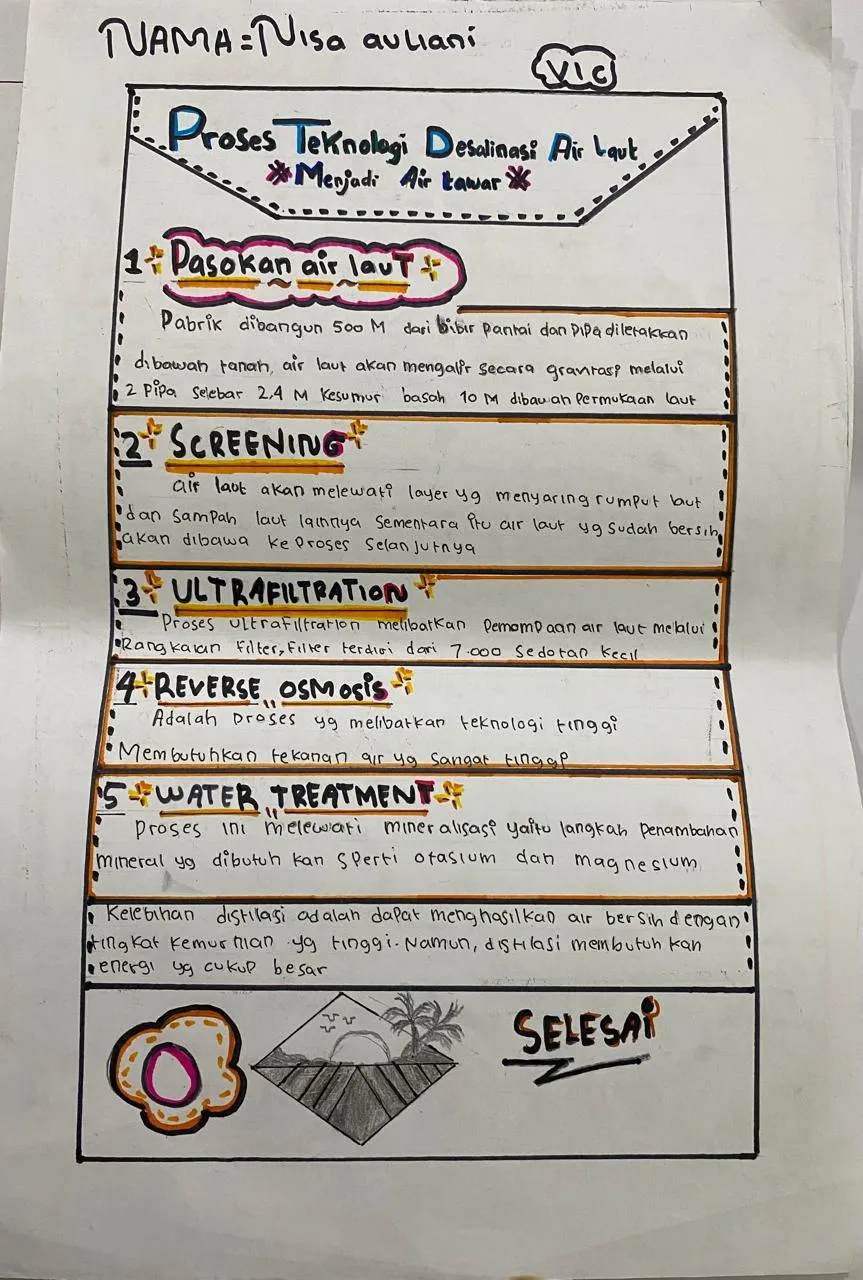 NAMA = Nisa auliani
VIC
Proses Teknologi Desalinasi Air Laut
Menjadi Air tawar
1 Pasokan air lauT
Pabrik dibangun 500 M dari bibir pantai dan Pipa diletakkan
dibawah tanah, air laut akan mengalir secara gravitasi melalui
2 Pipa selebar 2,4 M Kesumur basah 10 M dibawah Permukaan laut
2 SCREENING
air laut akan melewati layer yg menyaring rumput laut
dan sampah laut lainnya sementara itu air laut yg sudah bersih
akan dibawa ke Proses selanjutnya
3 ULTRAFILTRATION
Proses ultrafiltration melibatkan Pemompaan air laut melalui
Rangkaian Filter, Filter terdiri dari 7.000 sedotan kecil
4 REVERSE OSMOSIS
Adalah proses yg melibatkan teknologi tinggi
Membutuhkan tekanan air yg sangat tinggi
5 WATER TREATMENT
Proses ini melewati mineralisasi yaitu langkah penambahan
mineral yg dibutuhkan sperti otasium dan magnesium
Kelebihan distilasi adalah dapat menghasilkan air bersih dengan
tingkat kemurnian yg tinggi. Namun, distilasi membutuhkan
energi yg cukup besar
SELESAI